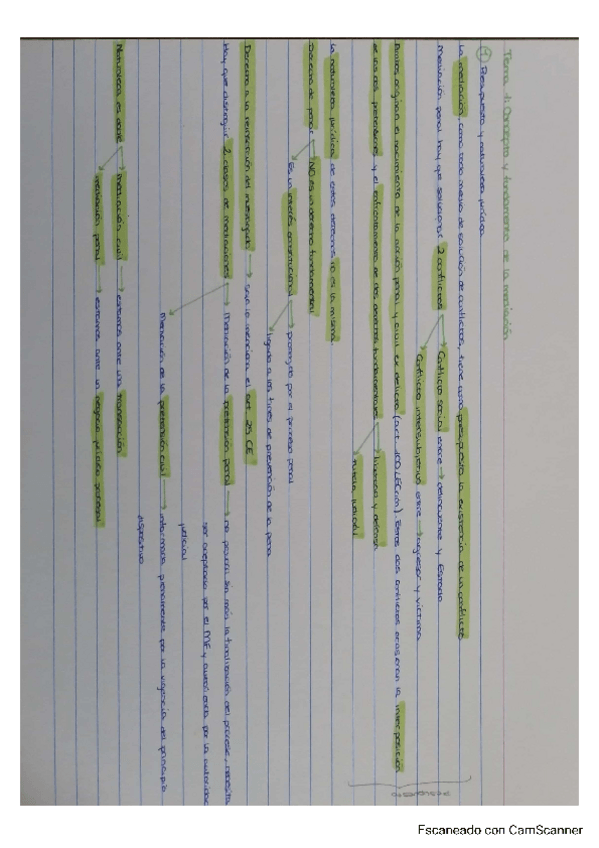 Tema 1: Concepto y fundamento de la mediación
① Presupuesto y naturaleza jurídica
La mediación, como todo medio de solución de conflictos, tiene como presupuesto la existencia de un conflicto
Mediación penal hay que solucionar 2 conflictos → Conflicto social entre → delincuente y Estado
Conflicto intersubjetivo entre → agresor y víctima
Ambos originan el nacimiento de la acción penal y civil ex delicto (art. 100 LECrim). Estos dos conflictos ocasionan la interposición
de sus dos pretensiones y el enfrentamiento de dos derechos fundamentales → libertad y defensa
tutela judicial
presupuesto
La naturaleza jurídica de estos derechos no es la misma.
Derecho de penar → NO es un derecho fundamental
Es un interés constitucional → protegido por el proceso penal
ligado a los fines de prevención de la pena
Derecho a la reinserción del investigado → solo lo menciona el art. 25 CE
Hay que distinguir 2 clases de mediaciones → Mediación de la pretensión penal → no podrá sin más la finalización del proceso, necesita
ser aceptada por el MF y autorizada por la autoridad
judicial
Mediación de la pretensión civil → informada plenamente por la vigencia del principio
dispositivo
Naturaleza es doble → mediación civil → estamos ante una transacción
mediación penal → estamos ante un negocio jurídico procesal
Escaneado con CamScanner